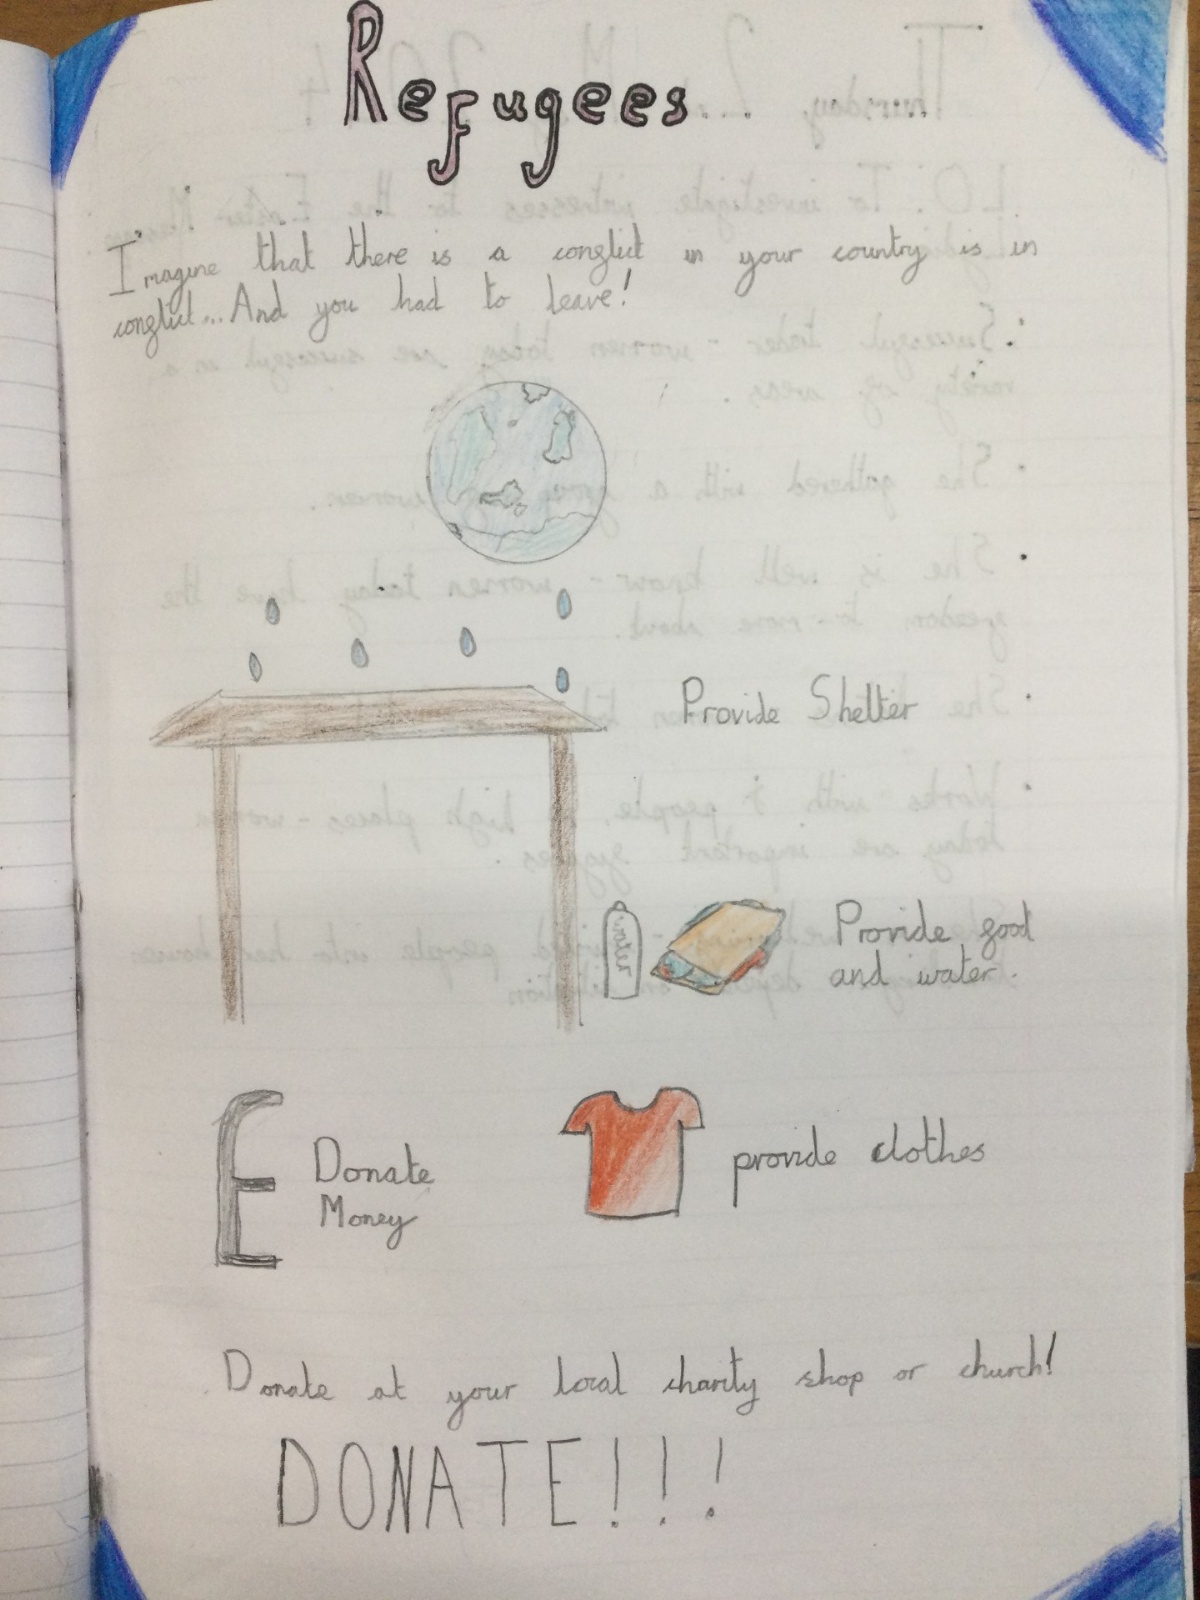 Refugees
Imagine that there is a conflict in your country is in
conflict... And you had to leave!
Provide Shelter
water
Provide food
and water.
£ Donate
Money
provide clothes
Donate at your local charity shop or church!
DONATE!!!